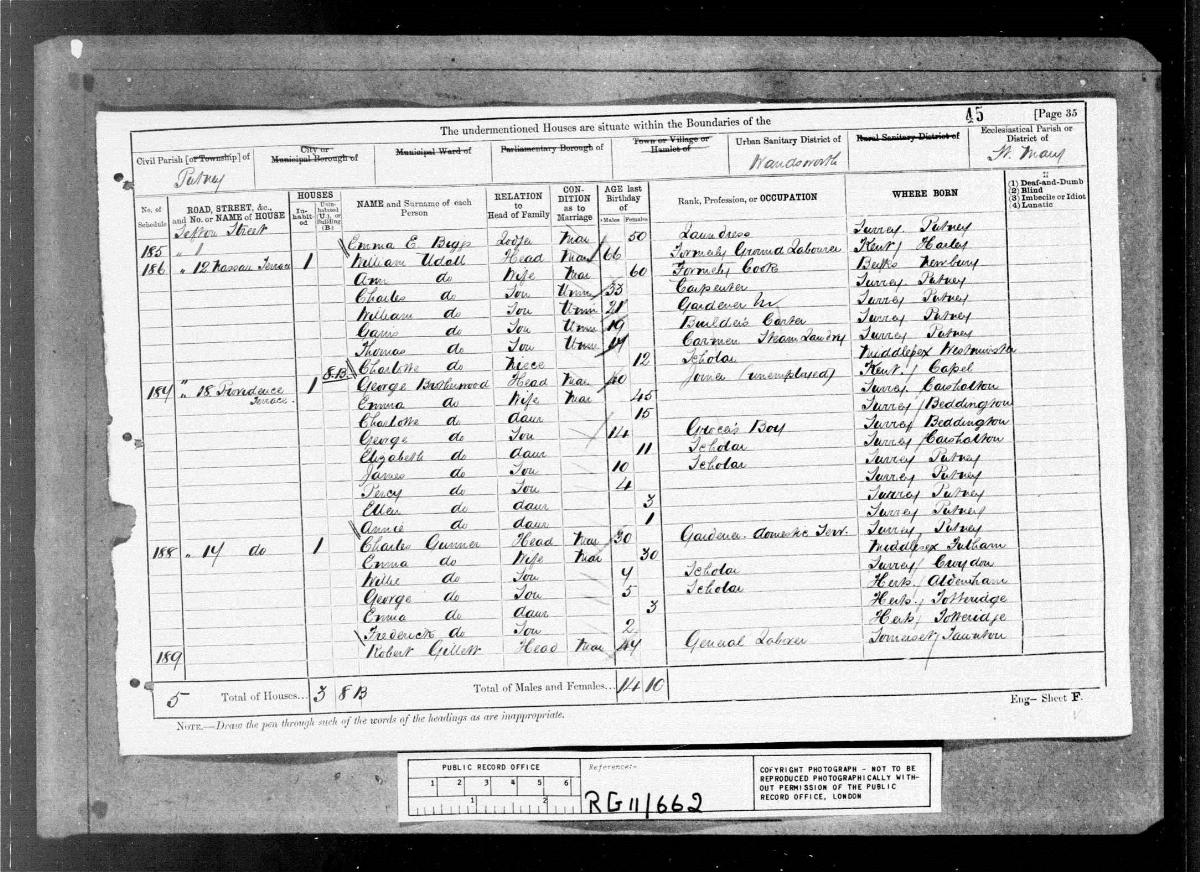 45
[Page 35
The undermentioned Houses are situate within the Boundaries of the
Civil Parish [or Township] of
City or Municipal Borough of
Municipal Ward of
Parliamentary Borough of
Town or Village or Hamlet of
Urban Sanitary District of
Rural Sanitary District of
Ecclesiastical Parish or District of
Putney
Wandsworth
St. Mary
No. of Schedule
ROAD, STREET, &c., and No. or NAME of HOUSE
HOUSES
In-habit-ed
Unin-habited (U.), or Building (B.)
NAME and Surname of each Person
RELATION to Head of Family
CON-DITION as to Marriage
AGE last Birthday of
Males
Females
Rank, Profession, or OCCUPATION
WHERE BORN
(1) Deaf-and-Dumb
(2) Blind
(3) Imbecile or Idiot
(4) Lunatic
Sefton Street
185 " 1 Emma E Biggs Lodger Mar 50 Laundress Surrey Putney
186 " 12 Nassau Terrace 1 William Udall Head Mar 66 Formerly Ground Labourer Kent
Ann do Wife Mar 60 Formerly Cook Berks Newbury
Charles do Son Unm 33 Carpenter Surrey Putney
William do Son Unm 21 Gardener Surrey Putney
do Son Unm 19 Builder's Carter Surrey Putney
Thomas do Son Unm 17 Carmen Steam Laundry Surrey Putney
Charlotte do Niece 12 Scholar Middlesex Westminster
8.B.
187 " 18 Providence Terrace 1 George Brotherwood Head Mar 40 Joiner (unemployed) Kent Capel
Emma do Wife Mar 45 Surrey Carshalton
Charlotte do daur 15 Surrey Beddington
George do Son 14 Grocer's Boy Surrey Beddington
Elizabeth do daur 11 Scholar Surrey Carshalton
James do Son 10 Scholar Surrey Putney
Percy do Son 4 Surrey Putney
Ellen do daur 3 Surrey Putney
Annie do daur 1 Surrey Putney
188 " 17 do 1 Charles Gunner Head Mar 30 Gardener domestic Serv. Surrey Putney
Emma do Wife Mar 30 Middlesex Fulham
Willie do Son 7 Scholar Surrey Croydon
George do Son 5 Scholar Herts Aldenham
Emma do daur 3 Herts Totteridge
Frederick do Son 2 Herts Totteridge
189 Robert Gillett Head Mar 47 General Laborer Somerset Taunton
5 Total of Houses... 3 8 B Total of Males and Females... 14 10
Eng— Sheet F.
NOTE.—Draw the pen through such of the words of the headings as are inappropriate.
PUBLIC RECORD OFFICE
1 2 3 4 5 6
1 2
Reference:-
RG 11/662
COPYRIGHT PHOTOGRAPH - NOT TO BE
REPRODUCED PHOTOGRAPHICALLY WITH-
OUT PERMISSION OF THE PUBLIC
RECORD OFFICE, LONDON